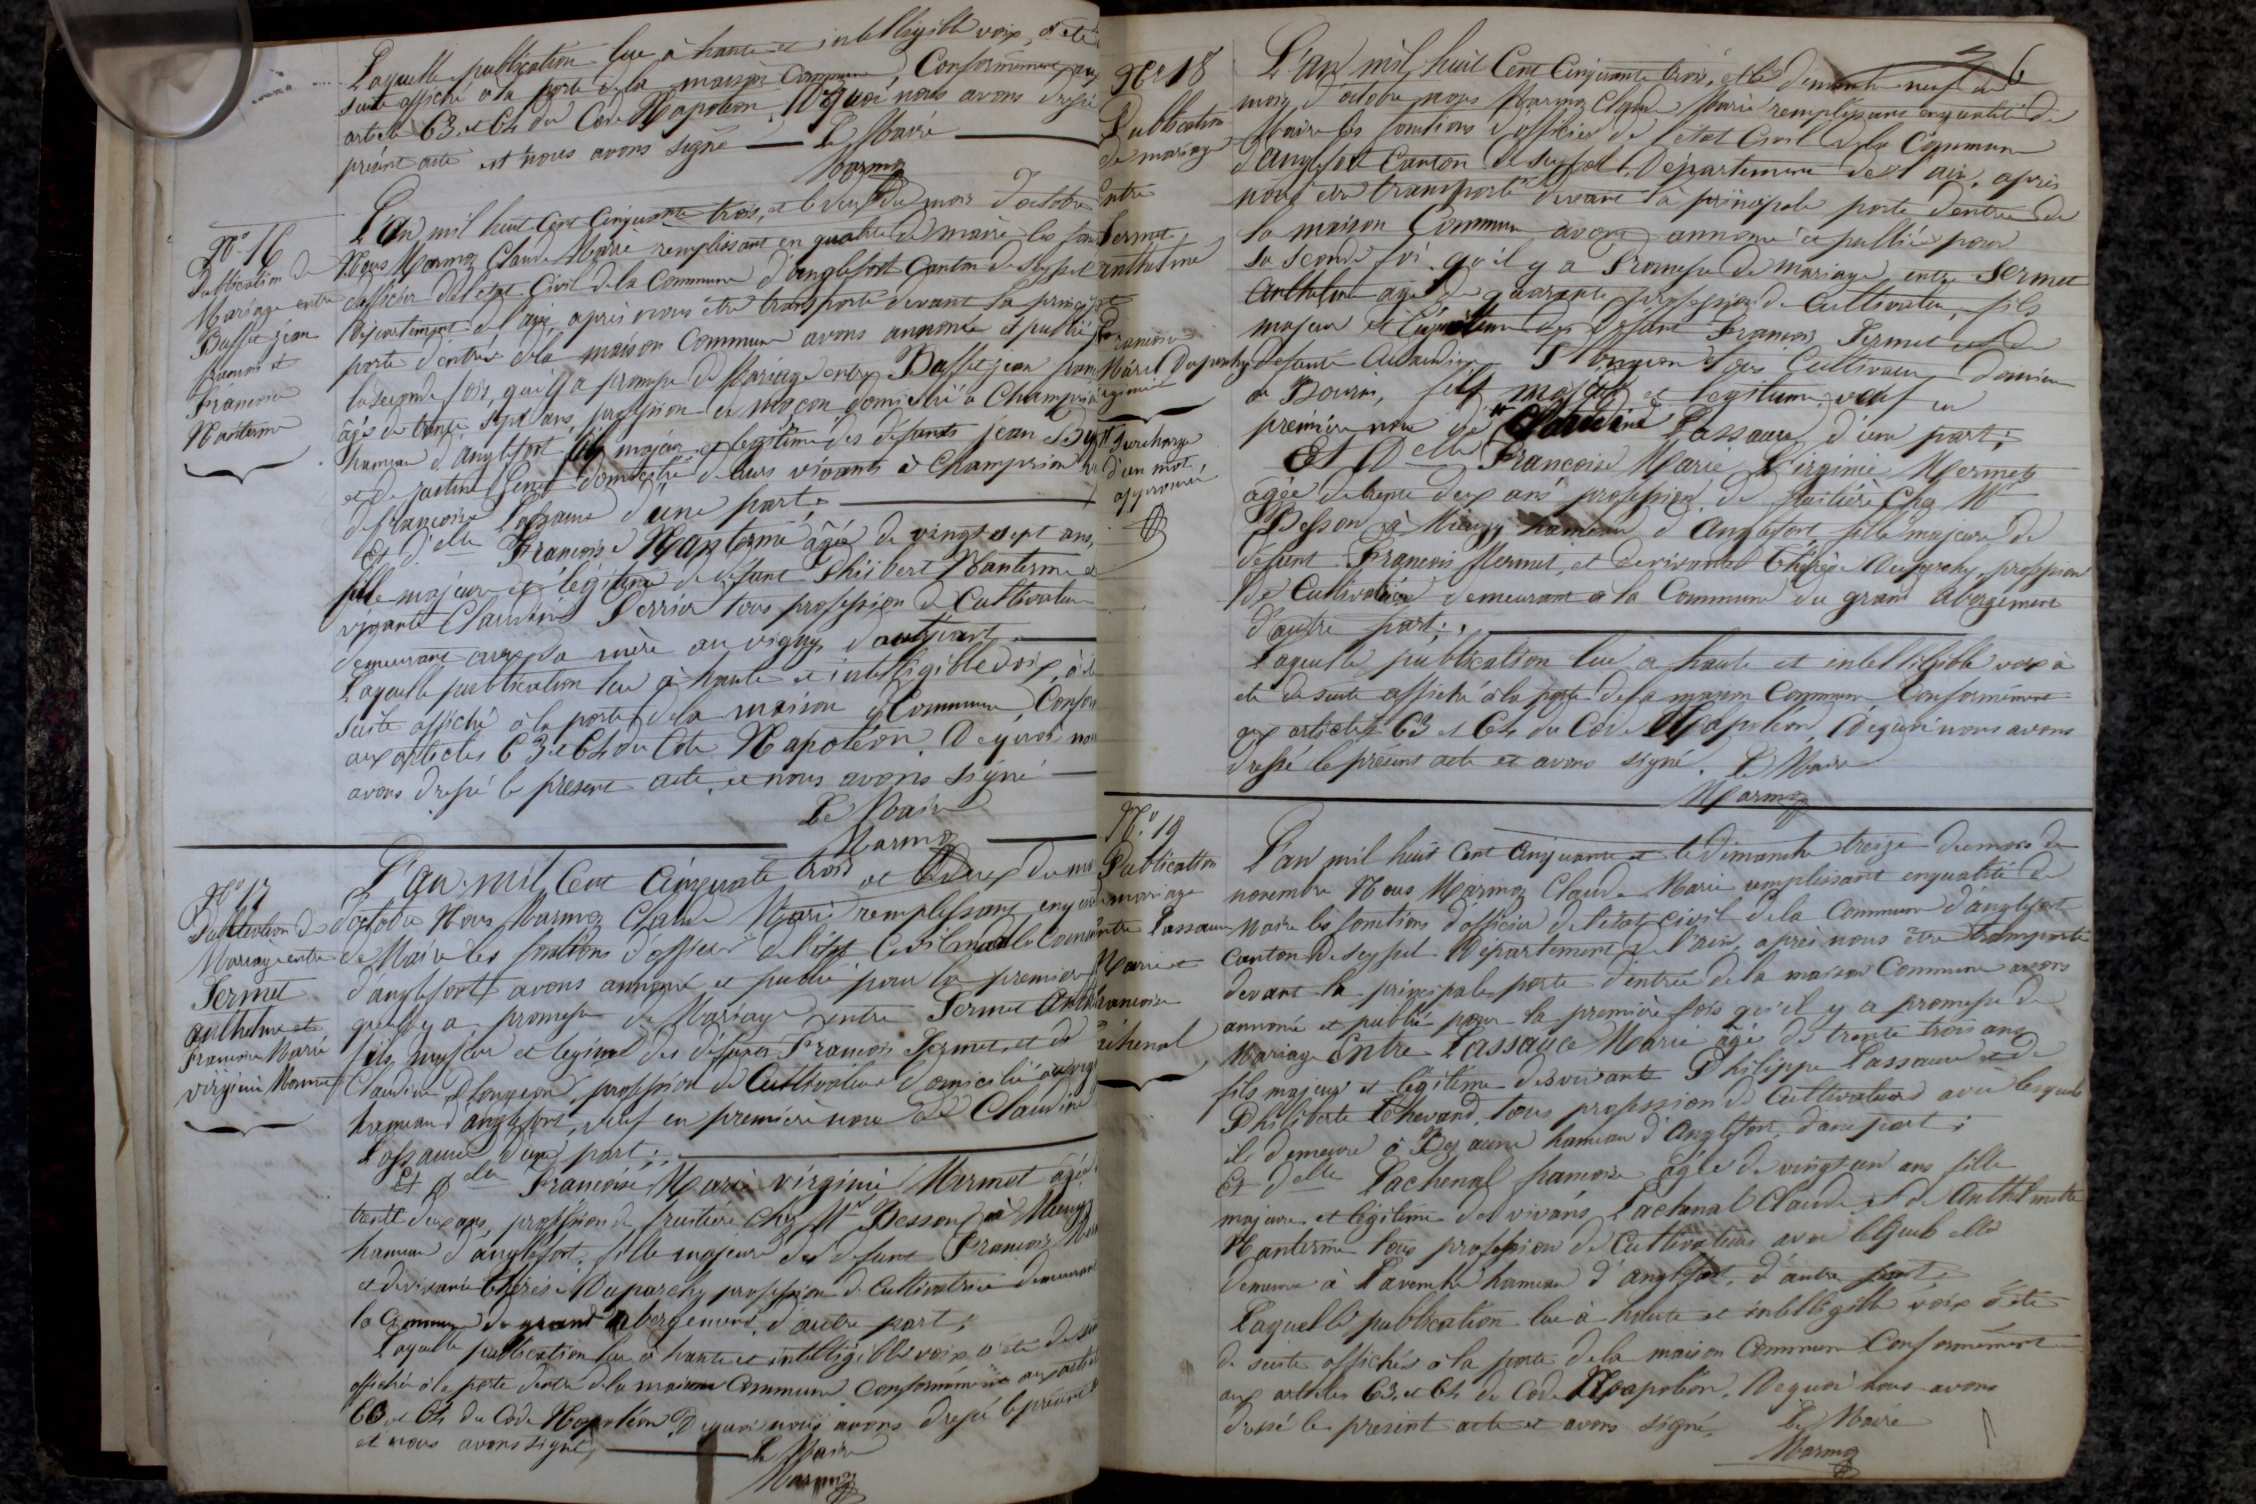 Laquelle publication lue à haute et intelligible voix, a été
suite affiché à la porte de la maison Commune, Conformément aux
article 63 et 64 du Code Napoléon, De quoi nous avons dressé
présent acte et nous avons signé Le Maire
Marmoz
N° 16
Publication de
Mariage entre
Buffet jean
francois et
Françoise
Nanterme
L'an mil huit Cent Cinquante trois, et le deux du mois d'octobre
Nous Marmoz Claude Marie remplissant en qualité de maire les fon
d'officier de l'état Civil de la Commune d'anglefort Canton de Seyssel
Département de l'ain, après nous être transporté devant la principale
porte d'entrée de la maison Commune avons annoncé et publié p
la seconde fois, qu'il y a promesse de Mariage entre Buffet jean fran
âgé de trente sept ans, profession de maçon domicilié à Champrio
hameau d'anglefort fils majeur et légitime des défunts jean
et de justine domiciliés de leurs vivants à Champrion
de françoise Lassauce d'une part.
Et d'elle Françoise Nanterme âgée de vingt sept ans,
fille majeure et légitime de défunt Philibert Nanterme et
vivante Claudine Perrier tous profession de Cultivateur
demeurant avec sa mère au vigny, d'autre part,
Laquelle publication lue à haute et intelligible voix, à é
suite affiché à la porte de la maison Commune, Confor
aux articles 63 et 64 du Code Napoléon. De quoi nou
avons dressé le présent acte, et nous avons signé
Le Maire
Marmoz
N° 17
Publication de
Mariage entre
Fermet
anthelme et
Françoise Marie
virginie Mermet
L'an mil Cent Cinquante trois et le deux du mo
d'octobre Nous Marmoz Claude Marie remplissant en qu
de Maire les fonctions d'officier de l'état Civil de la Comm
d'anglefort avons annoncé et publié pour la première
qu'il y a promesse de Mariage entre Fermet Anth
fils majeur et légitime des défunts François Fermet et de
Claudine Plongeon, profession de Cultivateur domicilié
hameau d'anglefort, veuf en première noce de Claudine
Lassauce d'une part;
Et d'elle Françoise Marie virginie Mermet âgée
trente deux ans, profession de fruitière chez Mr Besson à Mieugy
hameau d'anglefort, fille majeure de défunt François Me
et de vivante thérèse Duparchy profession de Cultivatrice demeurant
la Commune du grand abergement, d'autre part;
Laquelle publication lue à haute et intelligible voix, a été de sui
affichée à la porte d'entrée de la maison Commune Conformément aux articl
63 et 64 du Code Napoléon De quoi nous avons dressé le présent
et nous avons signé Le Maire
Marmoz
6
N° 18
Publication
de mariage
entre
Fermet
anthelme
et
francoise
Marie
Surcharge
d'un mot
approuvée
L'an mil huit Cent Cinquante trois, et le dimanche neuf du
mois d'octobre nous Marmoz Claude Marie remplissant en qualité de
Maire les fonctions d'officier de l'état Civil de la Commune
d'anglefort Canton de Seyssel, Département de l'ain, après
nous être transporté devant la principale porte d'entrée de
la maison Commune avons annoncé et publié pour
la seconde foi qu'il y a Promesse de mariage entre Fermet
Anthelme agé de quarante profession de Cultivateur, fils
majeur et légitime des défunt François Fermet et de
défunte Claudine Plongeon tous Cultivateur domicilié
fils majeur et légitime veuf en
première noce de Claudine Lassauce d'une part;
Et Delle Françoise Marie Virginie Mermet
âgée de trente deux ans profession de fruitière Chez Mr
Besson à Mieugy hameau d'Anglefort, fille majeure de
défunt François Mermet, et de vivante thérèse Duparchy, profession
de Cultivatrice demeurant à la Commune du grand Abergement
d'autre part;
Laquelle publication lue à haute et intelligible voix à
été de suite affiché à la porte de la maison Commune Conformément
aux articles 63 et 64 du Code Napoléon, De quoi nous avons
dressé le présent acte et avons signé. Le Maire
Marmoz
N° 19
Publication
de mariage
entre Lassauce
Marie et
francoise
Lachenal
L'an mil huit Cent Cinquante et le dimanche treize du mois de
novembre Nous Marmoz Claude Marie remplissant en qualité de
Maire les fonctions d'officier de l'état civil de la Commune d'anglefort
Canton de Seyssel Département de l'ain, après nous être transporté
devant la principale porte d'entrée de la maison Commune avons
annoncé et publié pour la première fois qu'il y a promesse de
Mariage Entre Lassauce Marie âgé de trente trois ans
fils majeur et légitime des vivants Philippe Lassauce et de
Philiberte Chevand, tous profession de Cultivateurs avec lesquels
il demeure à hameau d'Anglefort, d'une part;
Et d'elle Lachenal francoise âgée de vingt un ans fille
majeure et légitime des vivans Lachenal Claude et de Anthelmette
Nanterme tous profession de Cultivateurs avec lesquels elle
demeure à Lavenche hameau d'anglefort, d'autre part;
Laquelle publication lue à haute et intelligible voix à été
de suite affichée à la porte de la maison Commune Conformément
aux articles 63 et 64 du Code Napoléon. De quoi nous avons
dressé le présent acte et avons signé, Le Maire
Marmoz